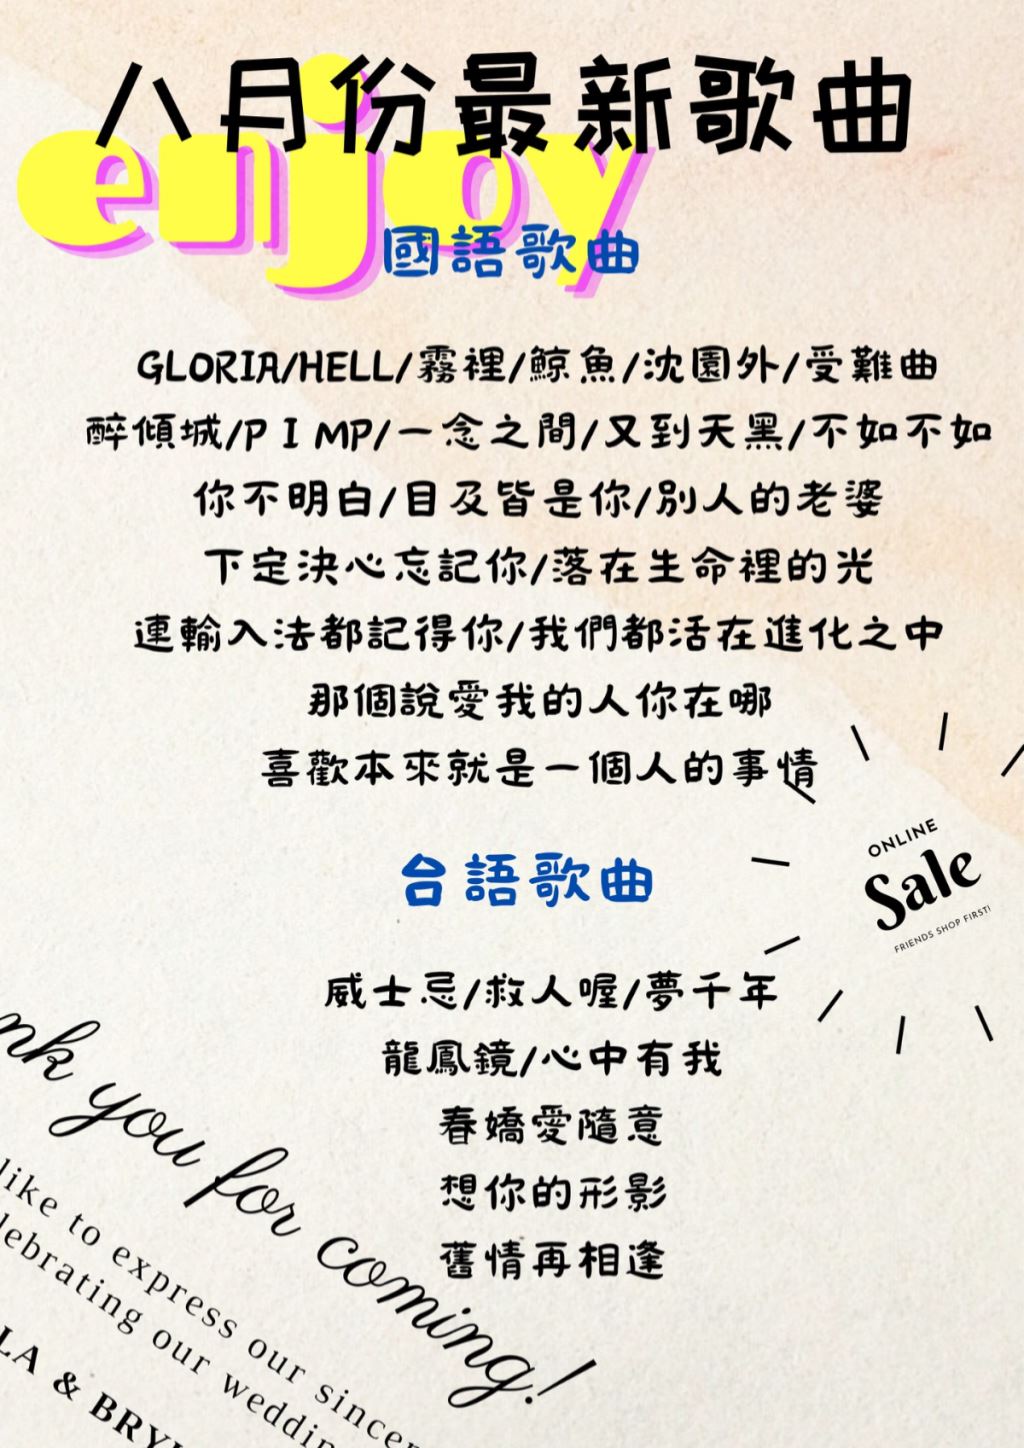 八月份最新歌曲
enjoy
國語歌曲
GLORIA/HELL/霧裡/鯨魚/沈園外/受難曲
醉傾城/P I MP/一念之間/又到天黑/不如不如
你不明白/目及皆是你/別人的老婆
下定決心忘記你/落在生命裡的光
連輸入法都記得你/我們都活在進化之中
那個說愛我的人你在哪
喜歡本來就是一個人的事情
ONLINE
Sale
FRIENDS SHOP FIRST!
台語歌曲
威士忌/救人喔/夢千年
龍鳳鏡/心中有我
春嬌愛隨意
想你的形影
舊情再相逢
nk you for coming!
like to express our sincer
lebrating our weddin
LA & BRY